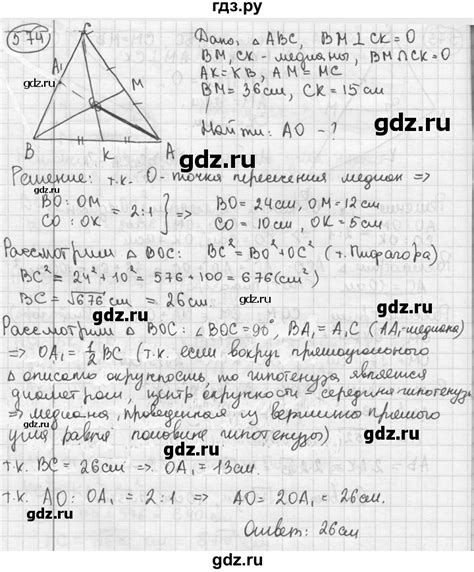 гдз.ру
574
Дано: △ ABC, BM⊥CK=O
BM, CK - медианы, BM∩CK=O
AK=KB, AM=MC
BM = 36см, CK = 15см
gdz.ru
Найти: AO - ?
C
A₁
M
O
B
K
A
gdz.ru
gdz.ru
Решение: т.к. O - точка пересечения медиан ⇒
BO:OM
CO:OK = 2:1 ⇒ BO = 24см, OM = 12см
CO = 10см, OK = 5см
gdz.ru
Рассмотрим △ BOC: BC² = BO² + OC² (т. Пифагора)
BC² = 24² + 10² = 576 + 100 = 676 (см²)
BC = √676 см = 26см.
gdz.ru
Рассмотрим △ BOC: ∠BOC = 90°, BA₁ = A₁C (AA₁-медиана)
⇒ OA₁ = ½ BC (т.к. если вокруг прямоугольного
△ описать окружность, то гипотенуза является
диаметром, центр окружности - середина гипотенузы
⇒ медиана, проведенная из вершины прямого
угла равна половине гипотенузы)
gdz.ru
т.к. BC = 26см ⇒ OA₁ = 13см.
т.к. AO:OA₁ = 2:1 ⇒ AO = 2OA₁ = 26см.
gdz.ru
Ответ: 26см
gdz.ru